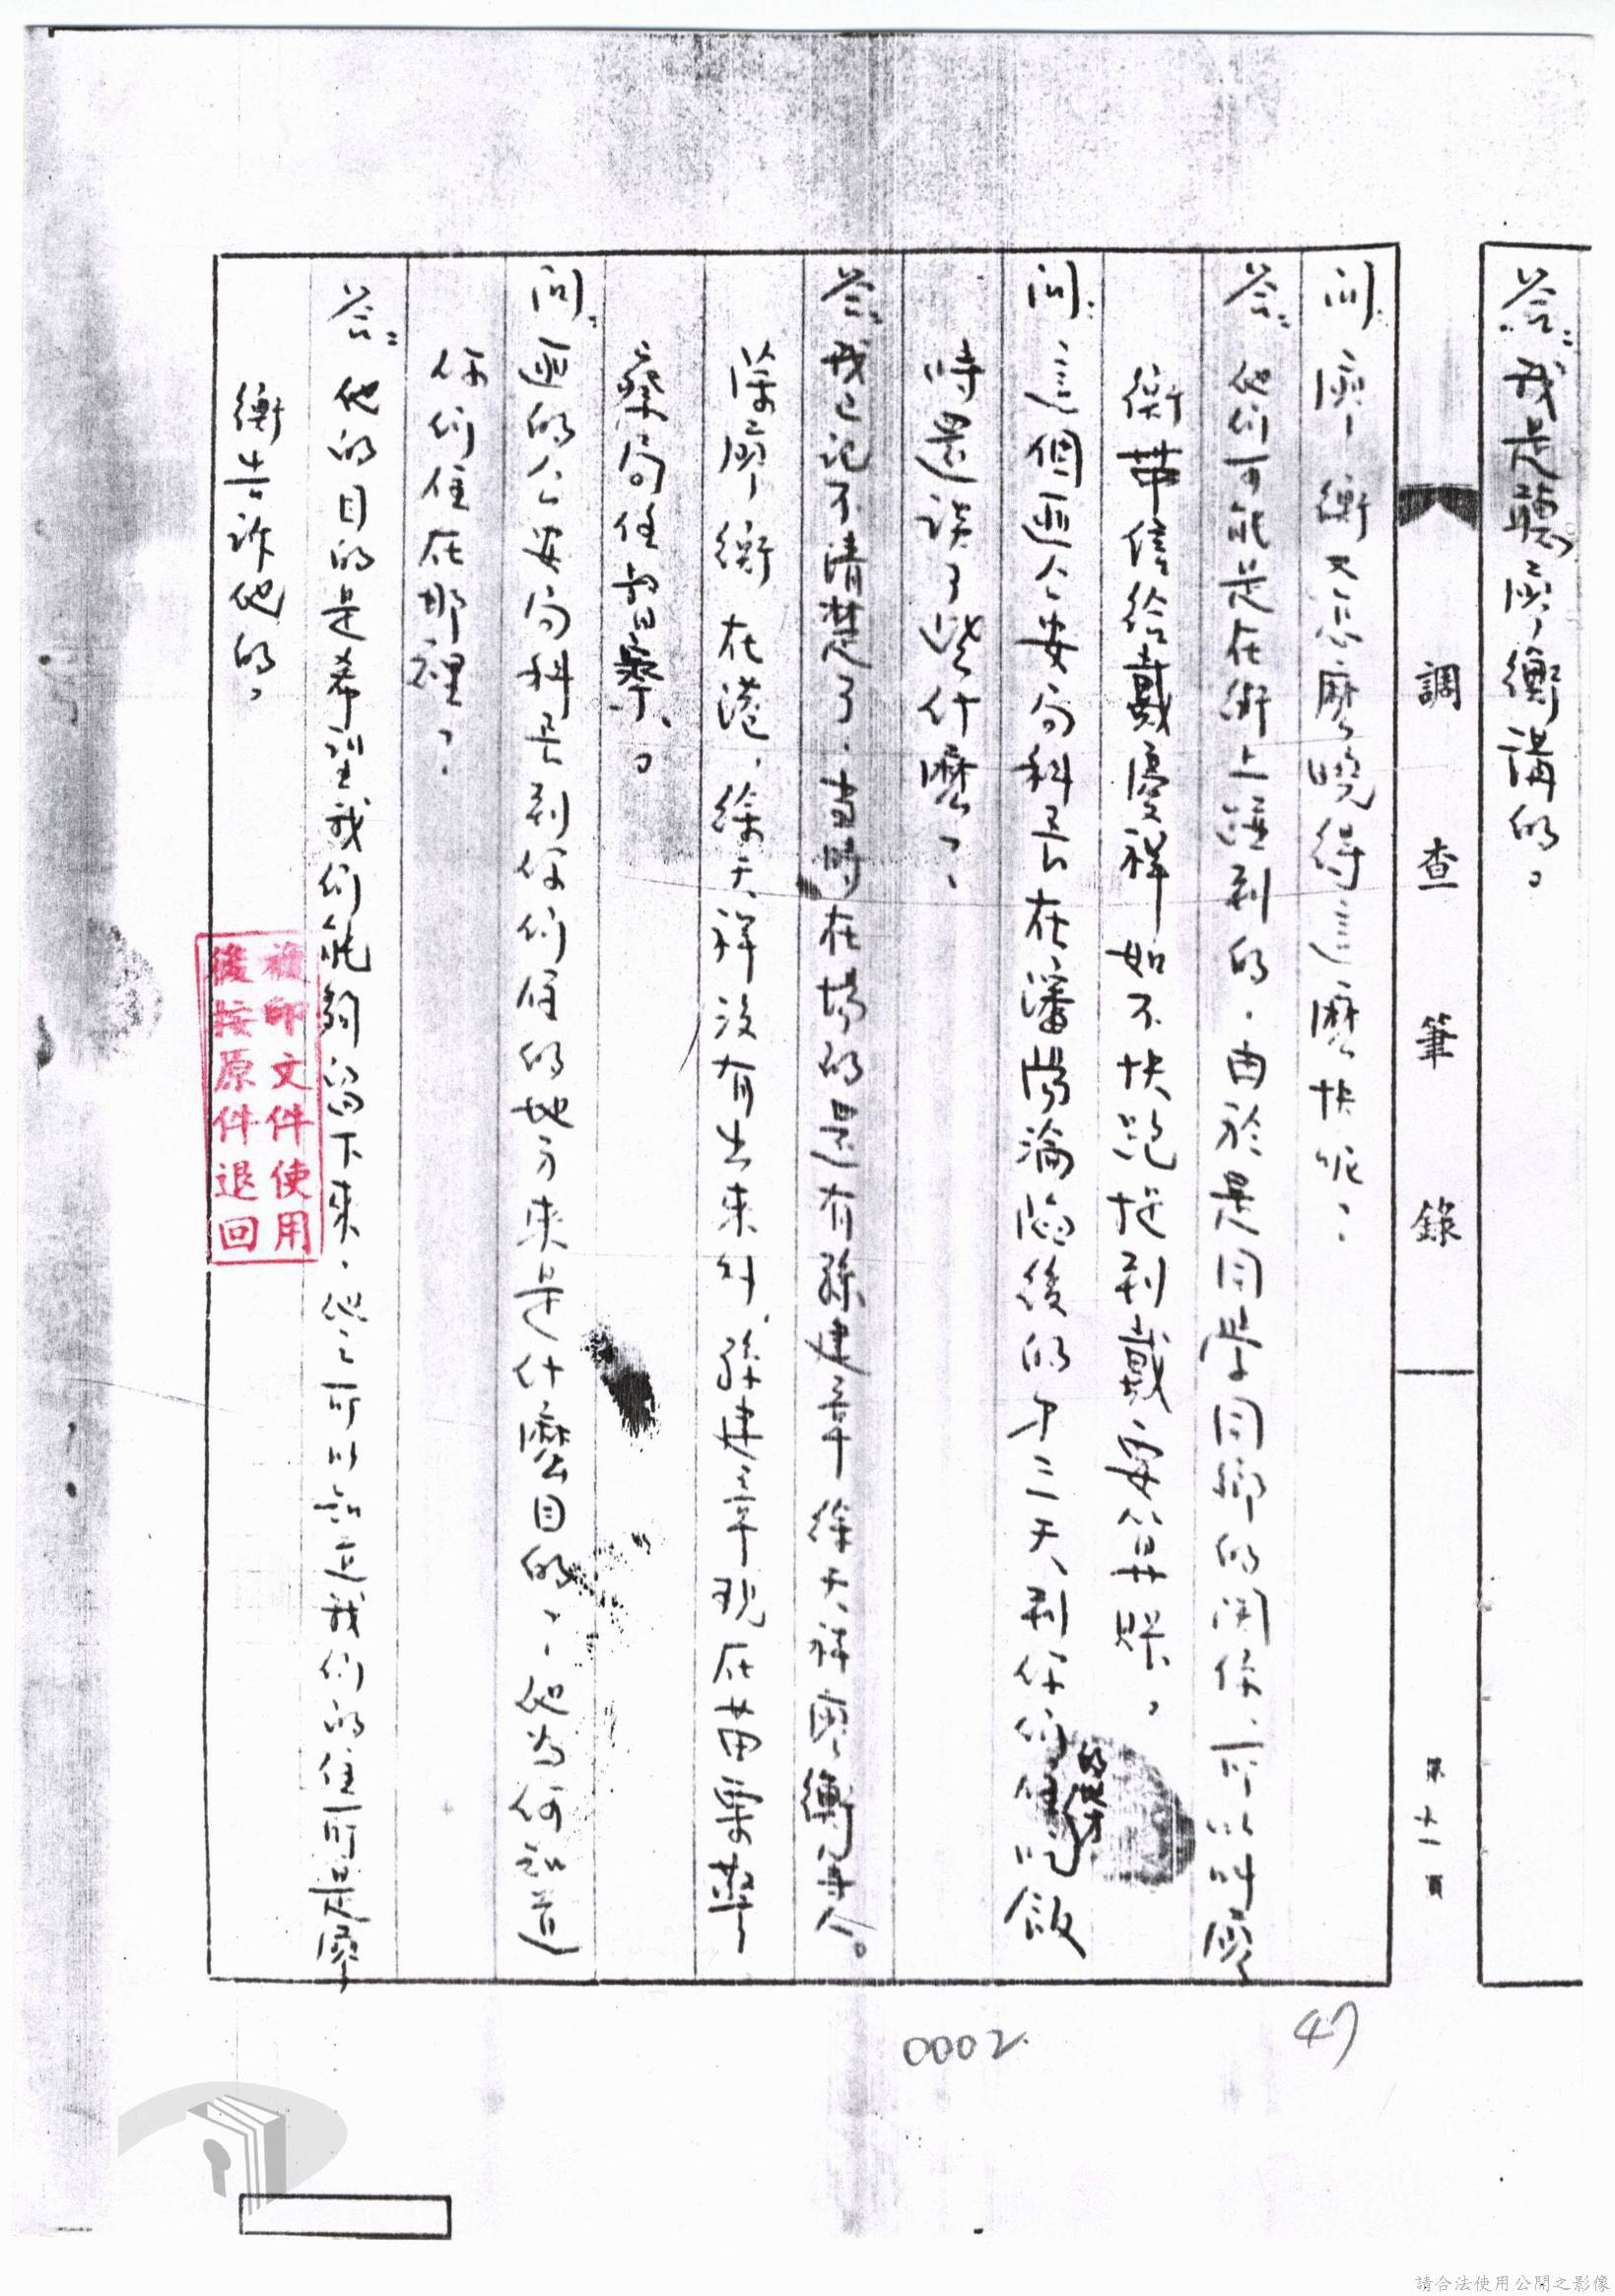 答：我是聽廖衡講的。
調查筆錄
第十一頁
問：廖衡又怎麼曉得這麼快呢？
答：他們可能是在街上碰到的，由於是同學同鄉的關係，所以叫廖
衡帶信給戴慶祥如不快范抵到戴
問：這個匪公安局科長在瀋陽淪陷後的第二天，到你們 吃飯
時還談了些什麼？
答：我已記不清楚了，當時在場的還有孫 章 徐天祥廖衡 人。
除廖衡在港，徐天祥沒有出來外，孫 章現在苗栗
藥局住
問：匪的公安局科長到你們住的地方來是什麼目的？他為何知道
你們住在那裡？
答：他的目的是希望我們能夠留下來，他所以知道我們的住所是廖
衡告訴他的。
複印文件使用
後按原件退回
47
0002
請合法使用公開之影像